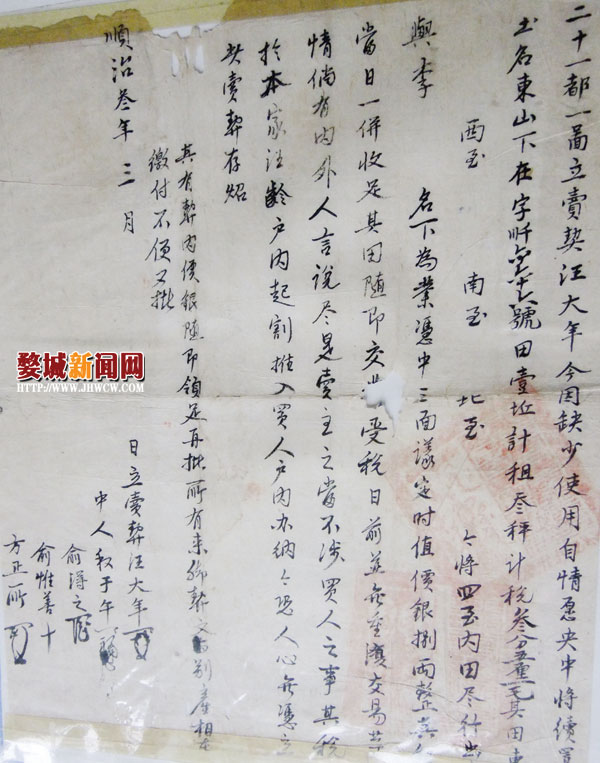 二十一都一啚立賣契汪大年今因缺少使用自情愿央中將續買
土名東山下在字號田壹坵計租叁秤計稅叁分其田東
西至 南至 北至 今將四至內田尽行出
與李 名下為業憑中三面議定时值價銀捌兩整其
當日一併收足其田隨即交受稅日前並無重復交易等
情倘有內外人言說尽是賣主之當不涉買人之事其稅
於本家汪齡户內起割推入買人户內办纳今恐人心無憑立
此賣契存炤
其有契內價銀隨即領足再批所有來腳契文與別產相
繳付不便又批
順治叁年三月
日立賣契汪大年
中人
俞淂之
俞惟善十
方正一所
婺城新闻网
HTTP://WWW.JHWCW.COM